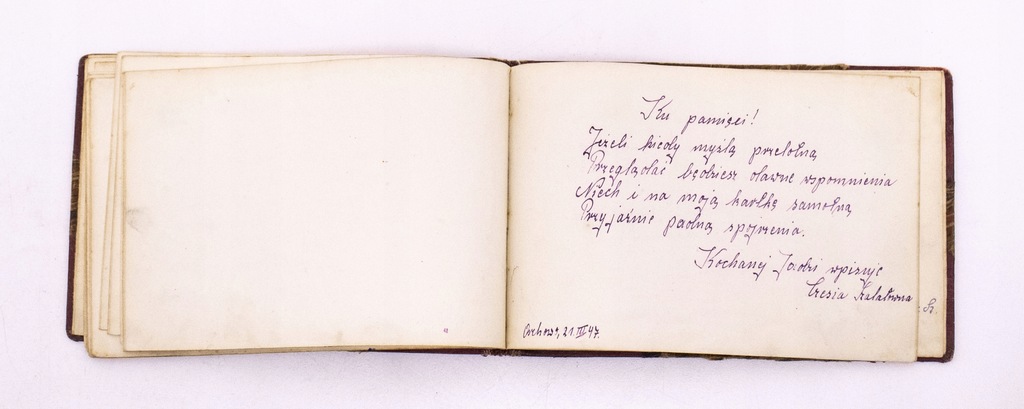 Ku pamięci!
Jeżeli kiedy myślą przelotną
Przeglądać będziesz dawne wspomnienia
Niech i na moją kartkę samotną
Przyjaźnie padną spojrzenia.
Kochanej Jadzi wpisuje
Czesia
21 III 47.